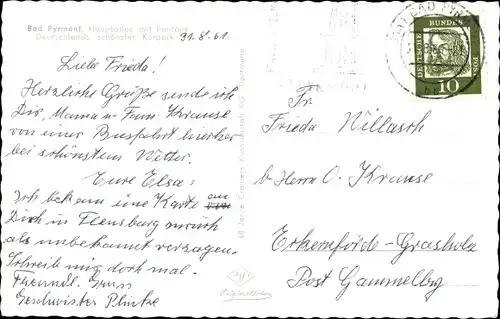 Bad Pyrmont, Hauptallee mit Fontäne
Deutschlands schönster Kurpark
31.8.61
Liebe Frieda!
Herzliche Grüße sende ich
Dir, Mama u Fam. Krause
von einer Busfahrt hierher
bei schönstem Wetter.
Eure Elsa.
Ich bekam eine Karte an
Dich in Flensburg zurück
als unbekannt verzogen.
Schreib mir doch mal.
Freundl. Gruss
Geschwister
BAD PYRMONT
DEUTSCHE BUNDESPOST
10
Fr.
Frieda Willasch
b. Herrn O. Krause
Eckernförde-Grasholz
Post Gammelby
Originalfoto